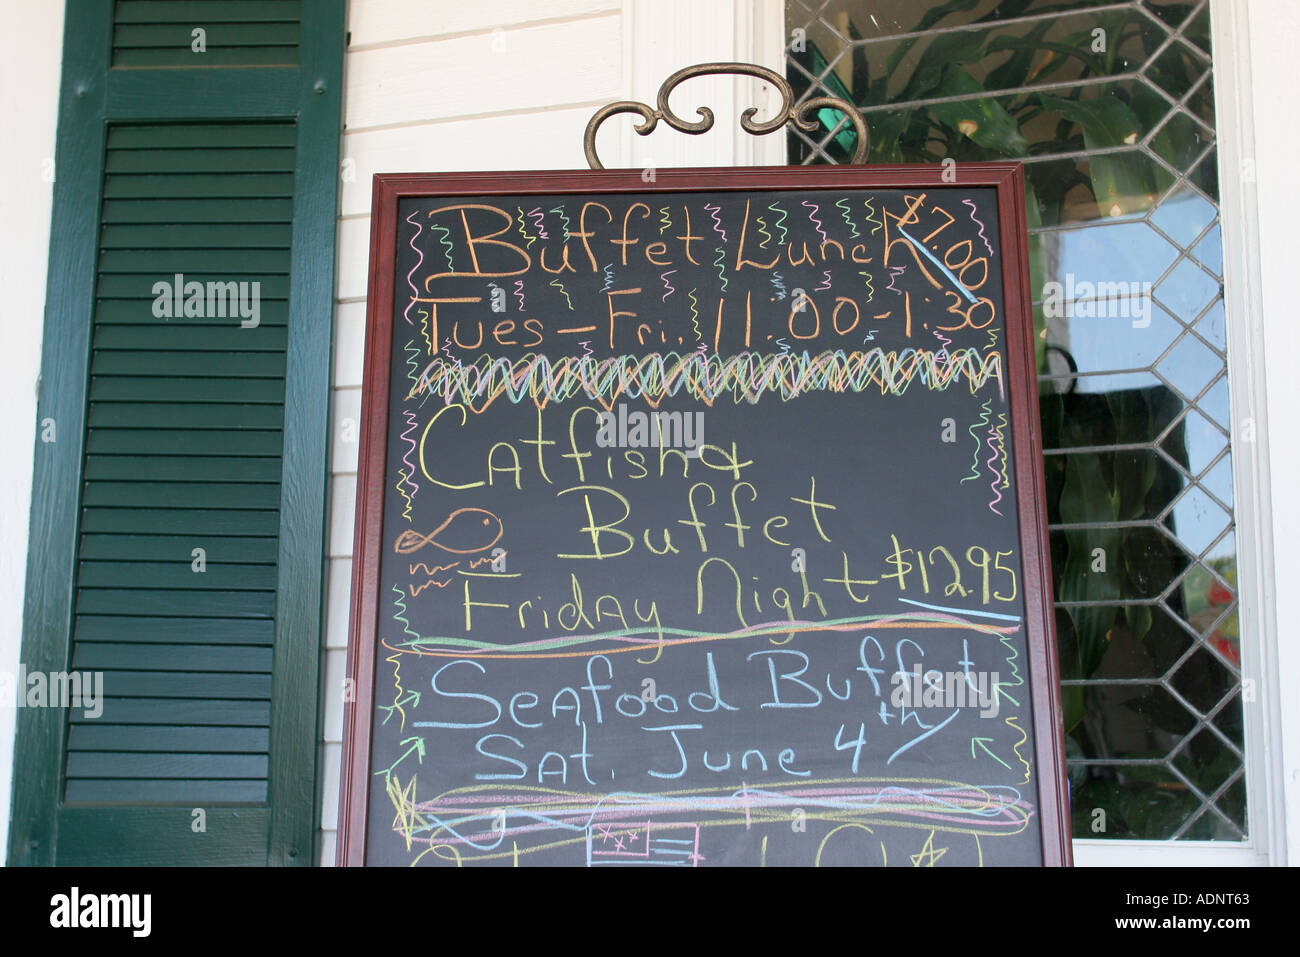 Buffet Lunch $7.00
Tues - Fri. 11:00 - 1:30
Catfish &
Buffet
Friday Night $12.95
Seafood Buffet
Sat. June 4th
alamy
Image ID: ADNT63
www.alamy.com